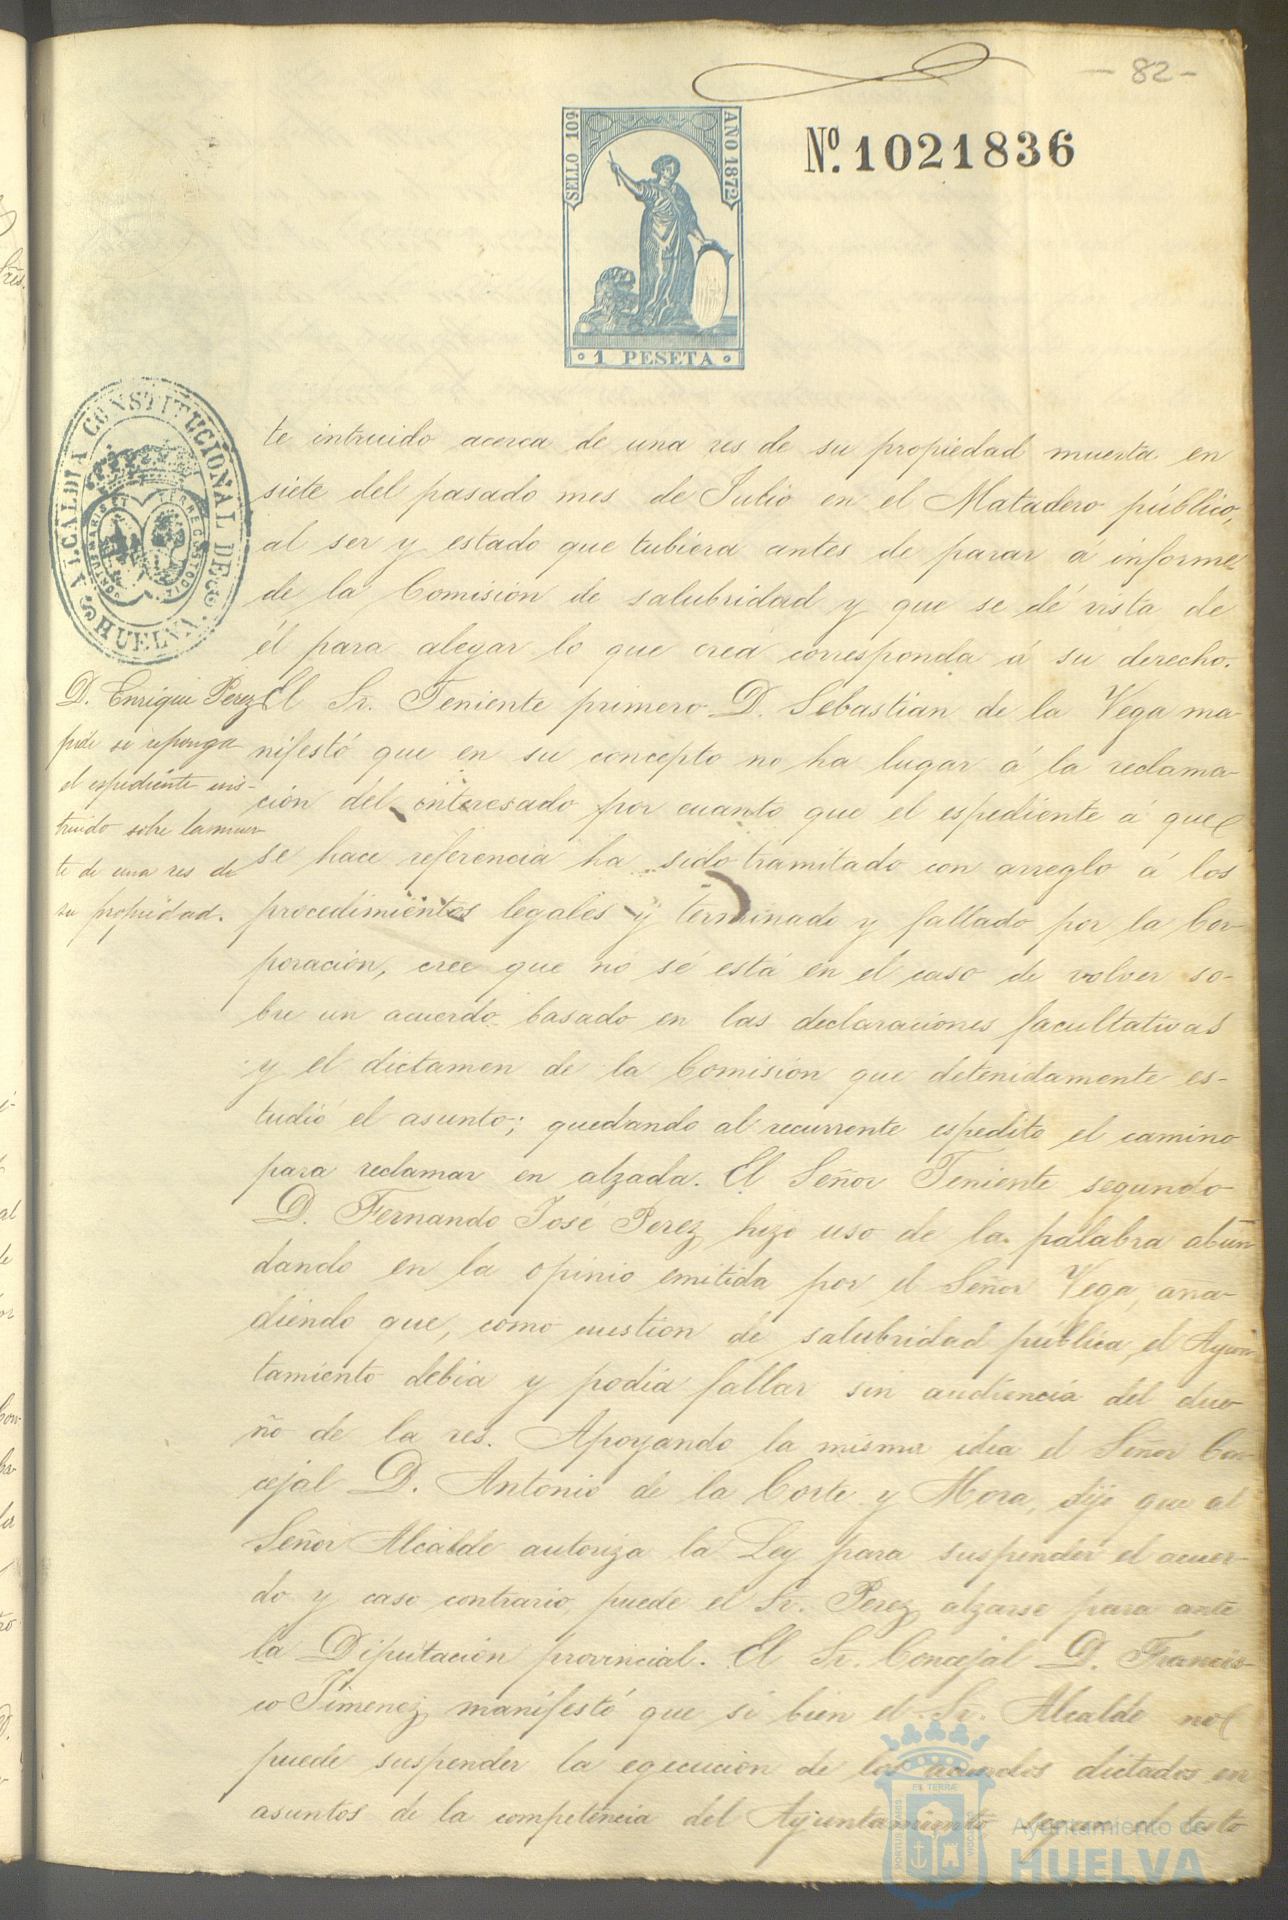 - 82 -
SELLO 10º
AÑO 1872
1 PESETA
Nº. 1021836
ALCALDIA CONSTITUCIONAL DE
HUELVA.
PORTUS MARIS ET TERRE CUSTODIA
te intruido acerca de una res de su propiedad muerta en
siete del pasado mes de Julio en el Matadero público,
al ser y estado que tubiera antes de parar á informe
de la Comision de salubridad y que se dé vista de
él para alegar lo que creá corresponda á su derecho.
D. Enrique Perez
pide se reponga
el espediente ins-
truido sobre la muer
te de una res de
su propiedad.
El Sr. Teniente primero D. Sebastian de la Vega ma-
nifestó que en su concepto no ha lugar á la reclama-
ción del interesado por cuanto que el espediente á que
se hace referencia ha sido tramitado con arreglo á los
procedimientos legales y terminado y fallado por la Cor-
poración, cree que no sé está en el caso de volver so-
bre un acuerdo basado en las declaraciones facultativas
y el dictamen de la Comision que detenidamente es-
tudió el asunto; quedando al recurrente espedito el camino
para reclamar en alzada. El Señor Teniente segundo
D. Fernando José Perez hizo uso de la palabra abun
dando en la opinio emitida por el Señor Vega, aña-
diendo que, como cuestion de salubridad pública, el Ayun
tamiento debia y podia fallar sin audiencia del due-
ño de la res. Apoyando la misma idea el Señor Con-
cejal D. Antonio de la Corte y Mora, dijo que al
Señor Alcalde autoriza la Ley para suspender el acuer-
do y caso contrario, puede el Sr. Perez alzarse para ante
la Diputación provincial. El Sr. Concejal D. Francis-
co Jimenez manifestó que si bien el Sr. Alcalde no
puede suspender la egecución de los acuerdos dictados en
asuntos de la competencia del Ayuntamiento segun el testo
Ayuntamiento de
HUELVA